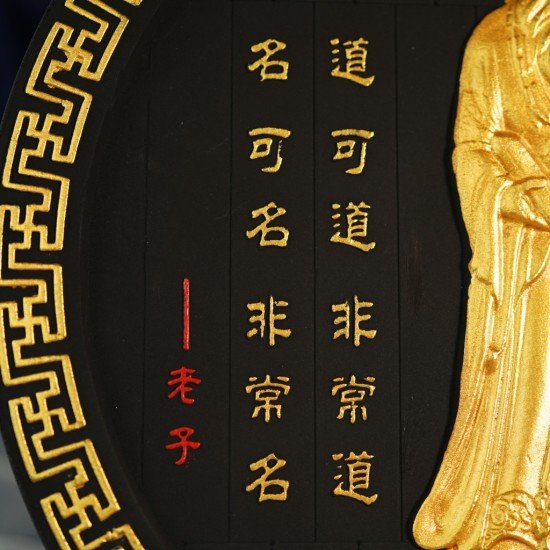 道可道非常道
名可名非常名
——老子